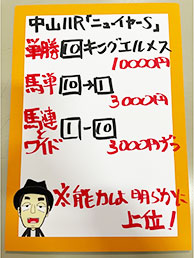 中山11R「ニューイヤーS」
単勝 10 キングエルメス
10000円
馬単 10→1
3000円
馬連とワイド 1-10
3000円ずつ
※能力は明らかに
上位!